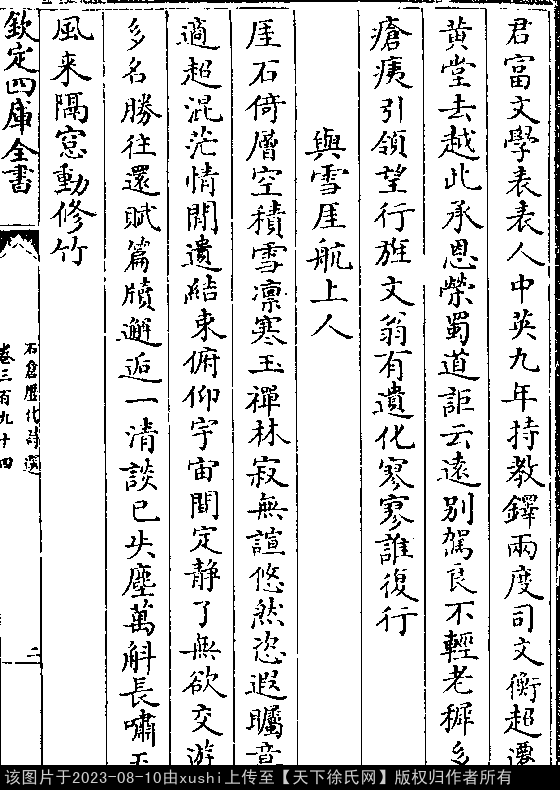 君富文學表表人中英九年持教鐸兩度司文衡超遷
黄堂去越此承恩榮蜀道詎云遠别駕良不輕老穉多
瘡痍引領望行旌文翁有遺化寥寥誰復行
與雪厓航上人
厓石倚層空積雪凛寒玉禪林寂無諠悠然恣遐矚意
適超混茫情閒遺結束俯仰宇宙間定静了無欲交游
多名勝往還賦篇牘邂逅一清談已失塵萬斛長嘯
風来隔窓動修竹
欽定四庫全書
石倉歷代詩選
卷三百九十四
二
该图片于2023-08-10由xushi上传至【天下徐氏网】版权归作者所有